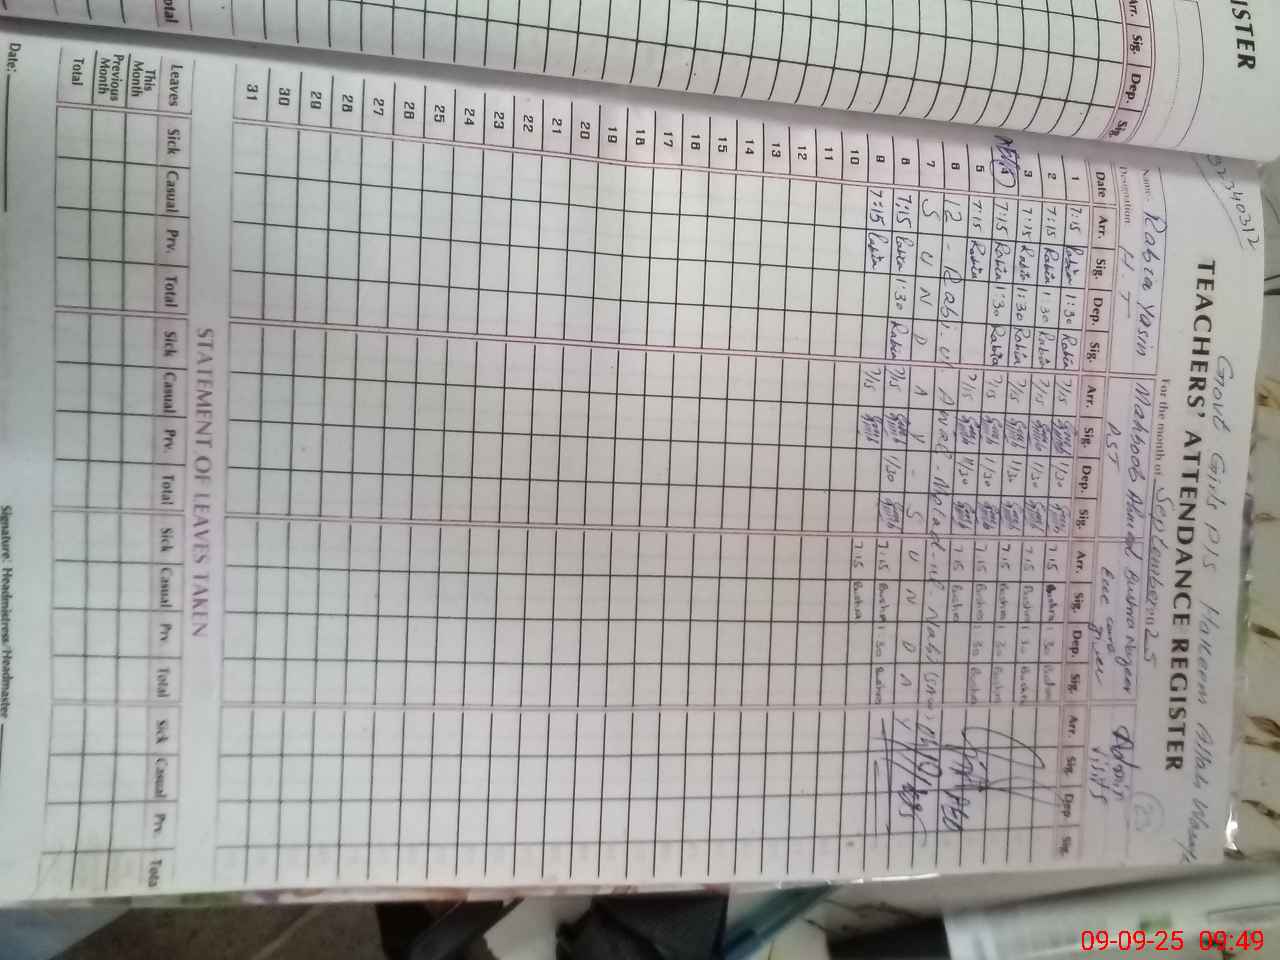 ISTER
Arr. Sig. Dep. Sig.
otal
32340312
Govt Girls P/S Haleem Allah
TEACHERS' ATTENDANCE REGISTER
For the month of September 2025
Name:- Rabia Yasin Mahboob Ahmed Bushra Admin
Designation H.T PST Ecce care giver visits
23
Date Arr. Sig. Dep. Sig. Arr. Sig. Dep. Sig. Arr. Sig. Dep. Sig. Arr. Sig. Dep. Sig.
1 7:15 Rabia 1:30 Rabia 7/15 1/30 7:15 Bushra 1:30 Bushra
2 7:15 Rabia 1:30 Rabia 7/15 1/30 7:15 Bushra 1:30 Bushra
3 7:15 Rabia 1:30 Rabia 7/15 1/30 7:15 Bushra 1:30 Bushra
7:15 Rabia 1:30 Rabia 7/15 1/30 7:15 Bushra 1:30 Bushra
5 7:15 Rabia 7/15 1/30 7:15 Bushra
6 12 - Rabi-ul Awal - Molad-ul-Nabi
7 S U N D A Y - S U N D A Y
8 7:15 Rabia 1:30 Rabia 7/15 1/30 7:15 Bushra 1:30 Bushra
9 7:15 Rabia 7/15 7:15 Bushra
10
11
12
13
14
15
16
17
18
19
20
21
22
23
24
25
26
27
28
29
30
31
STATEMENT OF LEAVES TAKEN
Leaves Sick Casual Prv. Total Sick Casual Prv. Total Sick Casual Prv. Total Sick Casual Prv. Total
This Month
Previous Month
Total
Date: Signature: Headmistress/Headmaster
09-09-25 09:49